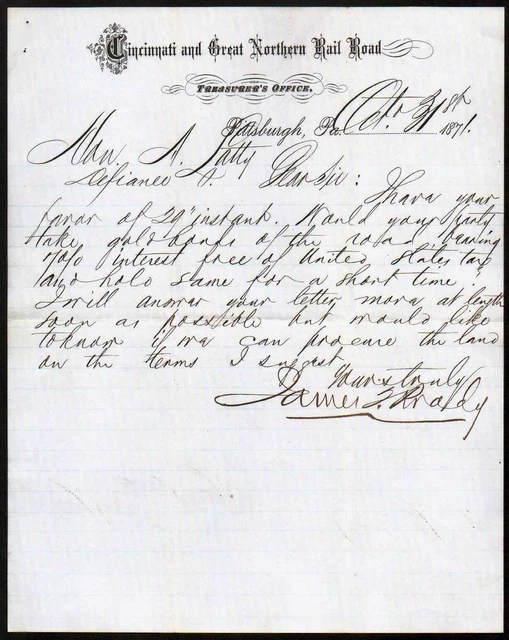 Cincinnati and Great Northern Rail Road
TREASURER'S OFFICE,
Pittsburgh, Pa. Oct. 31st 1871.
Hon. A. Latty
Defiance O. Dear Sir: I have your
favor of 29" instant. Would your party
take gold bonds of the road bearing
7% interest free of United States tax
and hold same for a short time?
I will answer your letter more at length
soon as possible but would like
to know if we can procure the land
on the terms I suggest
Yours truly
James